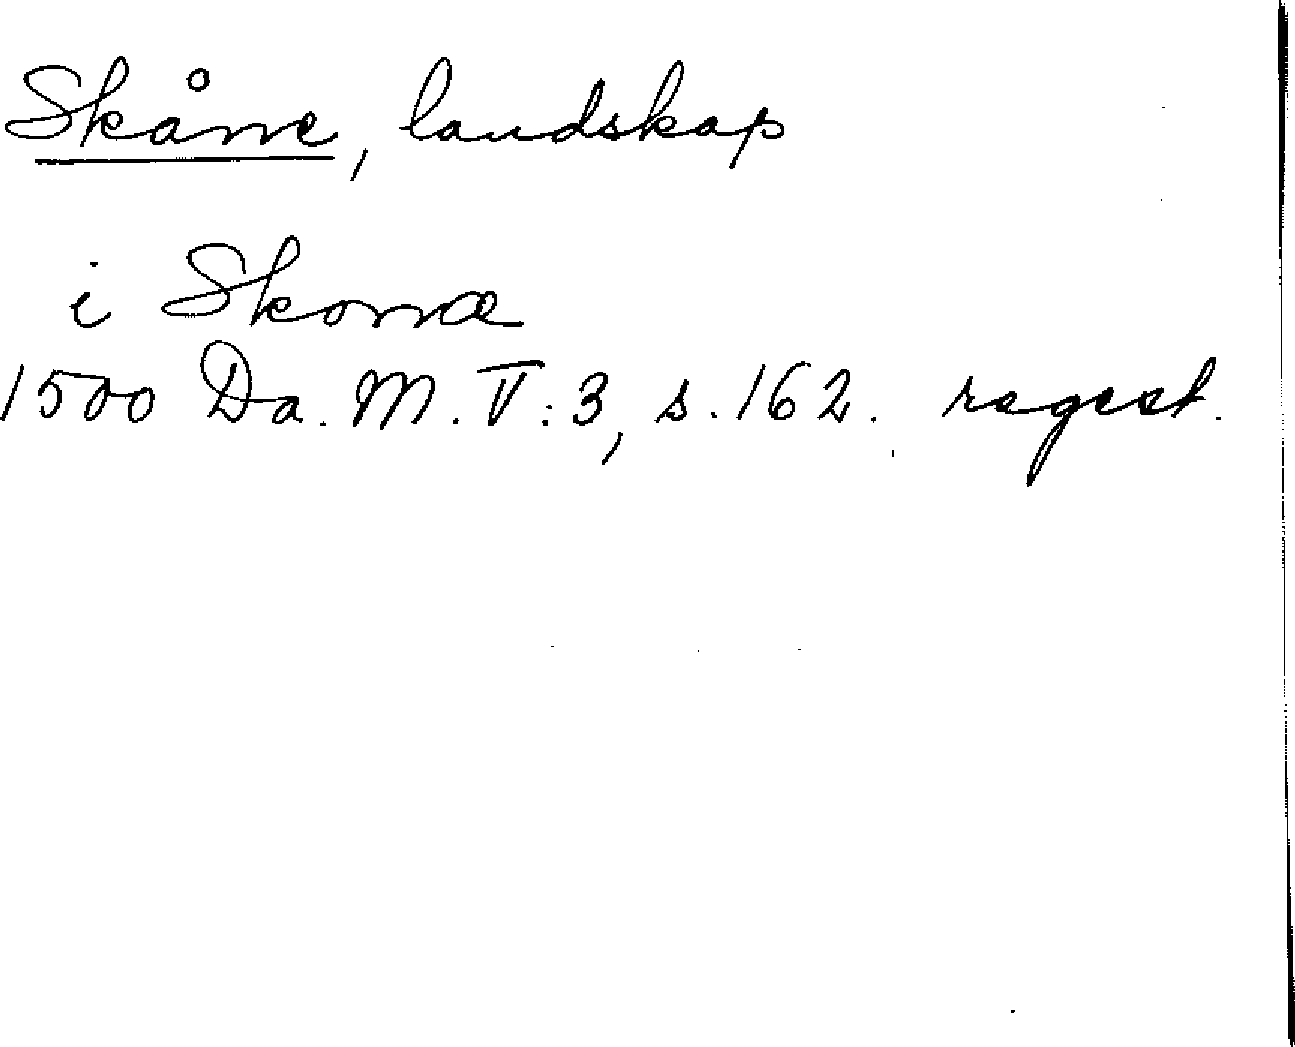 Skåne, landskap
i Skonæ
1500 Da. M. V: 3, s. 162. regest.